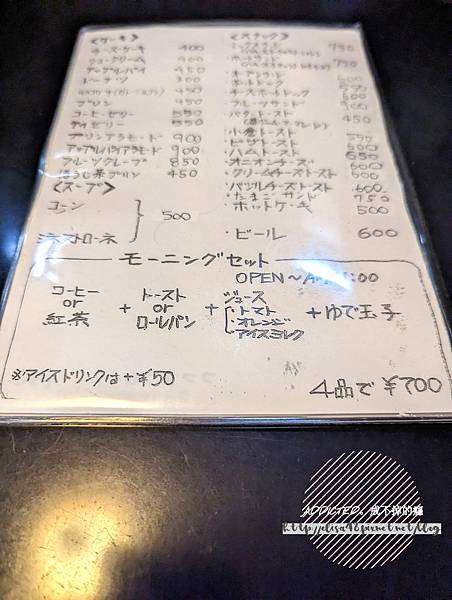 <ケーキ>
チーズ・ケーキ 400
シュークリーム 900
アップルパイ 450
ドーナツ 300
450
プリン 450
コーヒーゼリー 550
ティゼリー 550
プリンアラモード 900
アップルパイアラモード 900
フルーツクレープ 850
ほうじ茶プリン 450
<スープ>
コーン
ミネストローネ
500
<スナック>
ミックスサンド 750
ホットサンド 750
・ホットドック
・チーズホットドック
・フルーツサンド 900
・バタートースト 450
・小倉トースト
・ピザトースト
・ハムトースト 650
・オニオンチーズ 600
・クリームチーズトースト 600
・バジルチーズトースト 600
・たまごサンド 750
・ホットケーキ 500
・ビール 600
モーニングセット
OPEN〜AM :00
コーヒー or 紅茶 + トースト or ロールパン + ジュース ・トマト ・オレンジ ・アイスミルク + ゆで玉子
※アイスドリンクは+¥50
4品で ¥700
ADDICTED。戒不掉的癮
http://elisa48.pixnet.net/blog